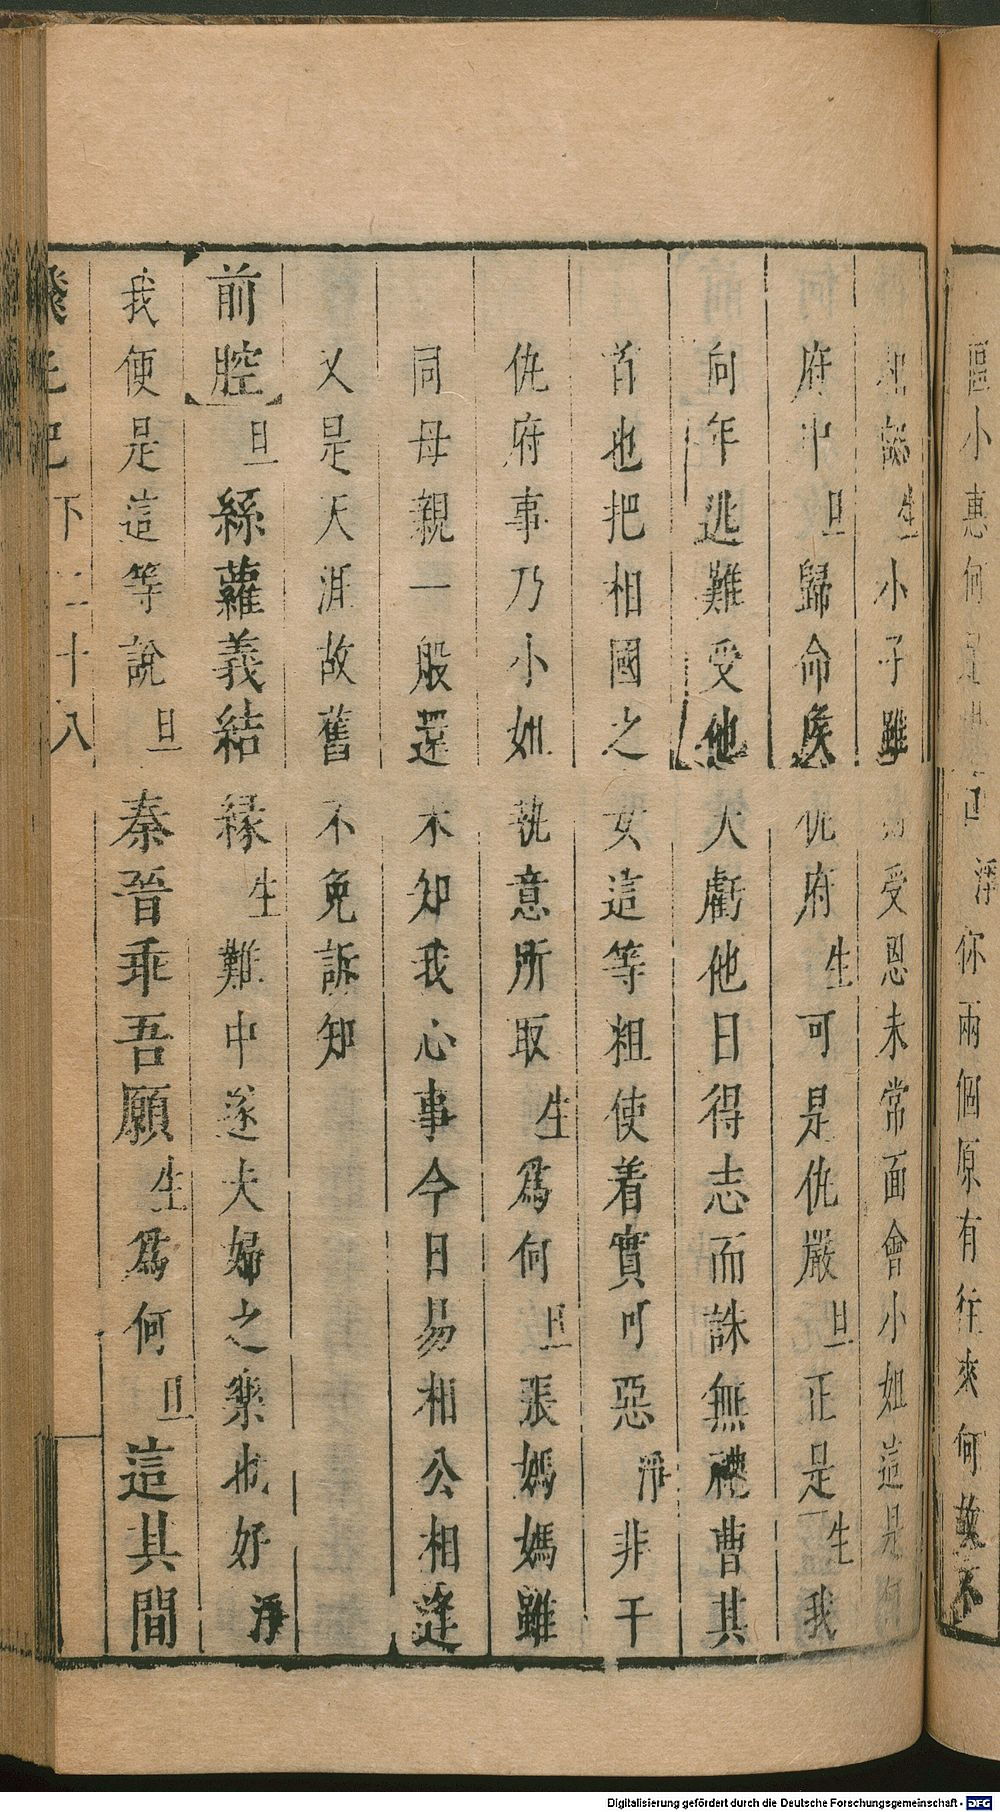 區小惠何足 淨你兩個原有往來何故不
生小子雖 受恩未常面會小姐這是何
府中旦歸命侯仇府生可是仇嚴旦正是生我
向年逃難受他大虧他日得志而誅無禮曹其
首也把相國之女這等粗使着實可惡淨非干
仇府事乃小姐執意所取生為何旦張媽媽雖
同母親一般還未知我心事今日易相公相逢
又是天涯故舊不免訴知
前腔旦絲蘿義結緣生難中遂夫婦之樂也好淨
我便是這等說旦秦晉乖吾願生為何旦這其間
下 二十八
Digitalisierung gefördert durch die Deutsche Forschungsgemeinschaft - DFG